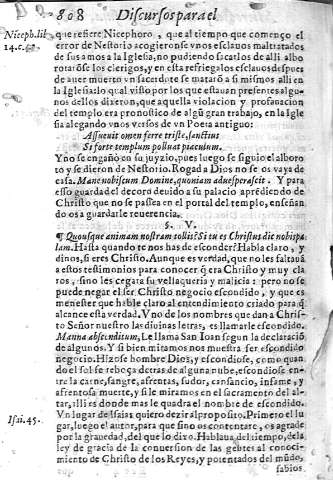 808 Discursos para el
Niceph. lib. que refiere Nicephoro, que al tiempo que començo el
14. c. error de Nestorio acogieronse vnos esclauos maltratados
de sus amos a la Iglesia, no pudiendo sacarlos de alli albo
rotarõse los clerigos, y en esta refriega los esclauos despues
de auer muerto vn sacerdote se matarõ a si mismos alli en
la Iglesia: lo qual visto por los que estauan presentes algu-
nos dellos dixeron, que aquella violacion y profanacion
del templo era pronostico de algũ gran trabajo, en la Igle
sia alegando vnos versos de vn Poeta antiguo:
Assueuit omen ferre triste, sanctius
Si forte templum polluat piaculum.
Y no se engañò en su juyzio, pues luego se siguio el alboro
to y se dieron de Nestorio. Rogad a Dios no se os vaya de
casa. Mane nobiscum Domine, quoniam aduesperascit. Y para
esso guardad el decoro deuido a su palacio aprẽdiendo de
Christo que no se passea en el portal del templo, enseñan
do os a guardarle reuerencia.
§. V.
¶ Quousque animam nostram tollis? Si tu es Christus dic nobis pa
lam. Hasta quando te nos has de esconder? Habla claro, y
dinos, si eres Christo. Aunque es verdad, que no les faltauã
a estos testimonios para conocer q̃ era Christo y muy cla
ros, sino les cegara su vellaqueria y malicia: pero no se
puede negar el ser Christo negocio escondido, y que es
menester que hable claro al entendimiento criado para q̃
alcance esta verdad. Vno de los nombres que dan a Chris-
to Señor nuestro las diuinas letras, es llamarle escondido.
Manna absconditum, Le llama San Iuan segun la declaraciõ
de algunos. Y si bien miramos nos muestra ser escondido
negocio. Hizose hombre Dios, y escondiose, como quan
do el sol se reboça detras de alguna nube, escondiose en-
tre la carne, sangre, afrentas, sudor, cansancio, infame, y
afrentosa muerte, y si le miramos en el Sacramento del al-
tar, alli es donde mas le quadra el nombre de escondido.
Isai. 45. Vn lugar de Isaias quiero dezir al proposito. Primero el lu
gar, luego el autor, para que sino os contentare, os agrade
por la grauedad, del que lo dixo. Hablaua del tiempo, de la
ley de gracia de la conuersion de las gentes al conoci-
miento de Christo de los Reyes, y potentados del mũdo,
sabios